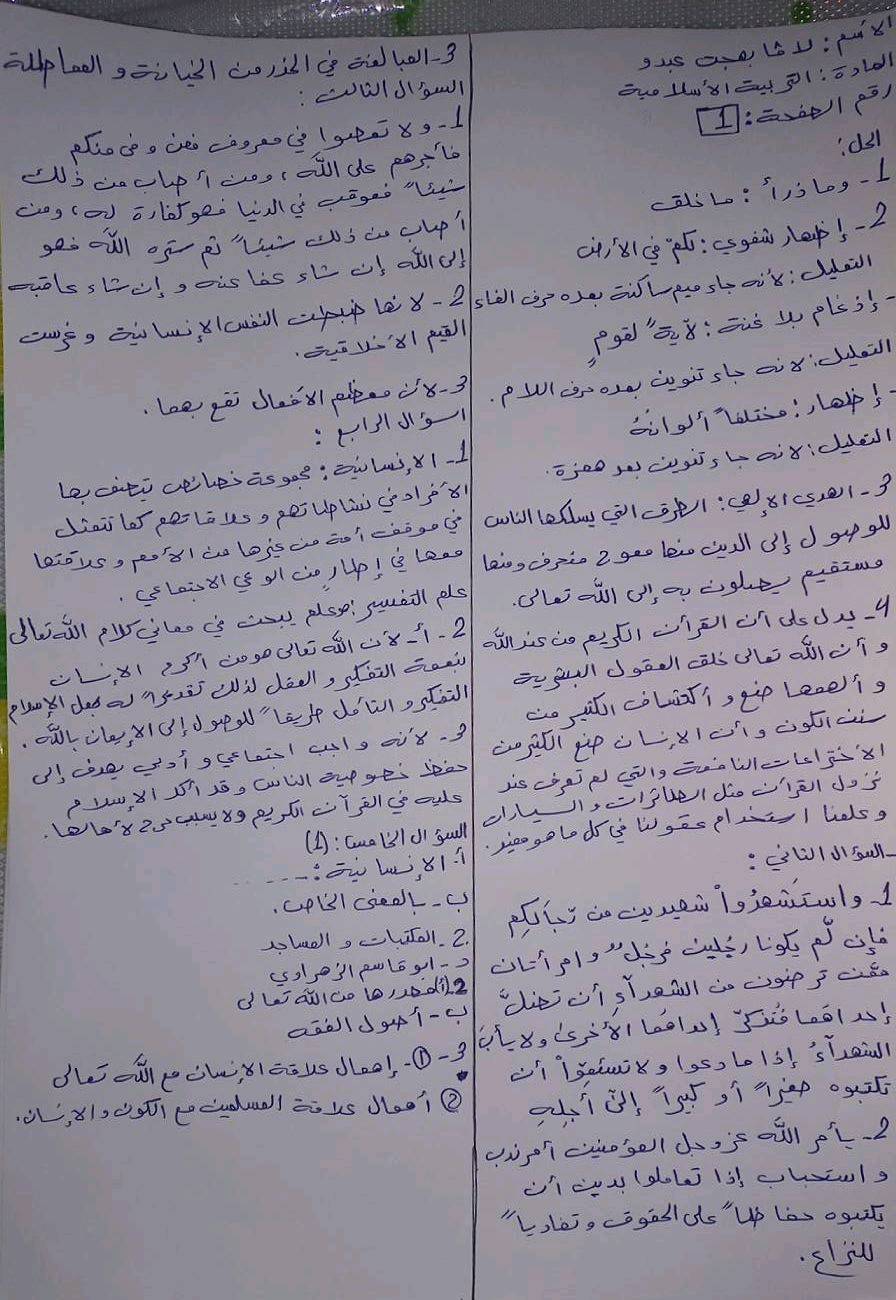 الأسم: لاڤا بهجت عبدو
المادة: التربية الأسلامية
رقم الصفحة: 1
الحل:
1- وما ذرأ: ما خلق
2- إظهار شفوي: لكمْ في الأرض
التعليل: لأنه جاء ميم ساكنة بعده حرف الفاء
إدغام بلا غنة: لآيةً لقومٍ
التعليل: لانه جاء تنوين بعده حرف اللام.
إظهار: مختلفاً ألوانهُ
التعليل: لانه جاء تنوين بعد همزة.
3- الهدي الإلهي: الطرق التي يسلكها الناس
للوصول إلى الدين منها معوج منحرف ومنها
مستقيم يصلون به إلى الله تعالى.
4- يدل على أن القرآن الكريم من عند الله
و أن الله تعالى خلق العقول البشرية
و ألهمها صنع و أكتشاف الكثير من
سنن الكون و أن الإنسان صنع الكثير من
الأختراعات النافعة والتي لم تعرف عند
نزول القرآن مثل الطائرات و السيارات
و علمنا استخدام عقولنا في كل ما هو مفيد.
-السؤال الثاني:
1- واستَشهدُواْ شهيدين من رّجالكم
فإن لّم يكونا رجُلين فرجُلٌ وامرأتان
ممّن ترضون من الشهدآءِ أن تضلَّ
إحداهما فتذكّرَ إحداهُما الأخرىٰ ولا يأبَ
الشهدآءُ إذا ما دعوا و لا تسئموٓاْ أن
تكتبوه صغيراً أو كبيراً إلىٰٓ أجلِهِ
2- يأمر الله عز وجل المؤمنين أمر ندب
و استحباب إذا تعاملوا بدين أن
يكتبوه حفاظاً على الحقوق و تفادياً
للنزاع.
3- المبالغة في الحذر من الخيانة و المماطلة
السؤال الثالث:
1- و لا تعصوا في معروف فمن وفى منكم
فأجرهم على الله، ومن أصاب من ذلك
شيئاً فعوقب في الدنيا فهو كفارة له، ومن
أصاب من ذلك شيئاً ثم ستره الله فهو
إلى الله إن شاء عفا عنه و إن شاء عاقبه
2- لانها ضبطت النفس الإنسانية و غرست
القيم الأخلاقية.
3- لأن معظم الأفعال تقع بهما.
اسؤال الرابع:
1- الإنسانية: مجموعة خصائص يتصف بها
الأفراد في نشاطاتهم و علاقاتهم كما تتمثل
في موقف أمة من غيرها من الأمم و علاقتها
معها في إطارٍ من الوعي الاجتماعي.
علم التفسير: هو علم يبحث في معاني كلام الله تعالى
2- أ- لأن الله تعالى هو من أكرم الإنسان
بنعمة التفكير و العقل لذلك تقديراً له جعل الإسلام
التفكير و التأمل طريقاً للوصول إلى الإيمان بالله.
3- لأنه واجب اجتماعي و أدبي يهدف إلى
حفظ خصوصية الناس و قد أكد الإسلام
عليه في القرآن الكريم ولا يسبب حرج لأهلها.
السؤال الخامس: (1)
أ- الإنسانية: ........
ب- بالمعنى الخاص.
2. المكتبات و المساجد
د- ابو قاسم الزهراوي
2- أ- مصدرها من الله تعالى
ب- أصول الفقه
3- ① - إهمال علاقة الإنسان مع الله تعالى
② أهمال علاقة المسلمين مع الكون والإنسان.